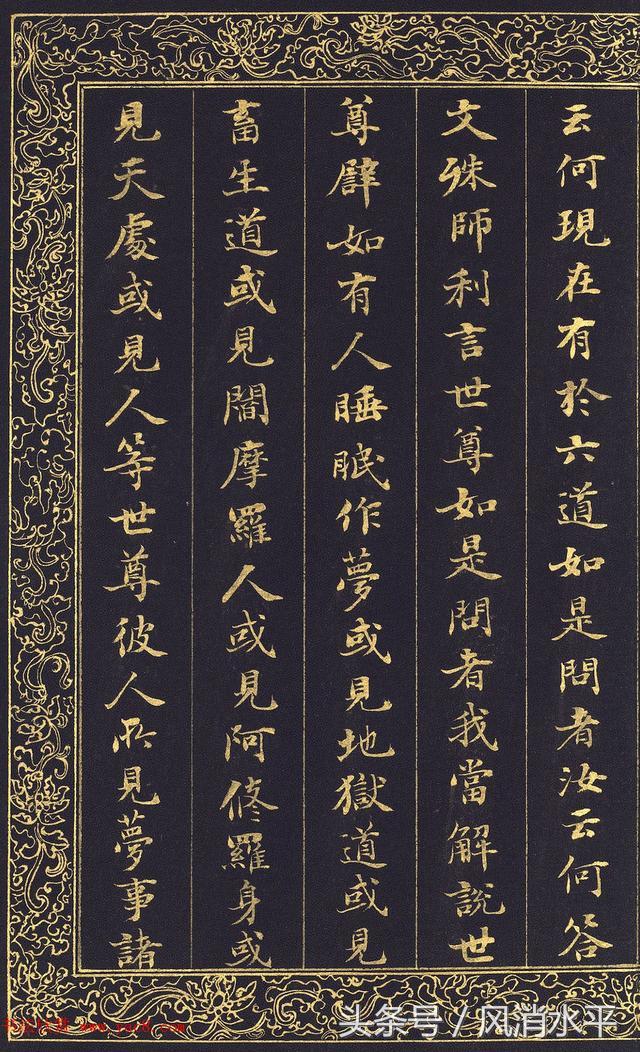 云何現在有於六道如是問者汝云何答
文殊師利言世尊如是問者我當解說世
尊辟如有人睡眠作夢或見地獄道或見
畜生道或見閻摩羅人或見阿修羅身或
見天處或見人等世尊彼人所見夢事諸
头条号 / 风消水平